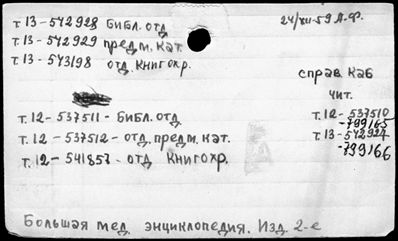 т 13-542928 библ. отд
24/XII-59 Л.Ф.
т 13-542929 предм. кат.
т 13-543198 отд. книгохр.
справ. каб
чит.
т. 12-537511 - библ. отд
т. 12-537510
-799165
т. 12-537512 - отд. предм. кат.
т. 13-542927
-799166
т. 12-541857 - отд книгохр.
Большая мед. энциклопедия. Изд. 2-е